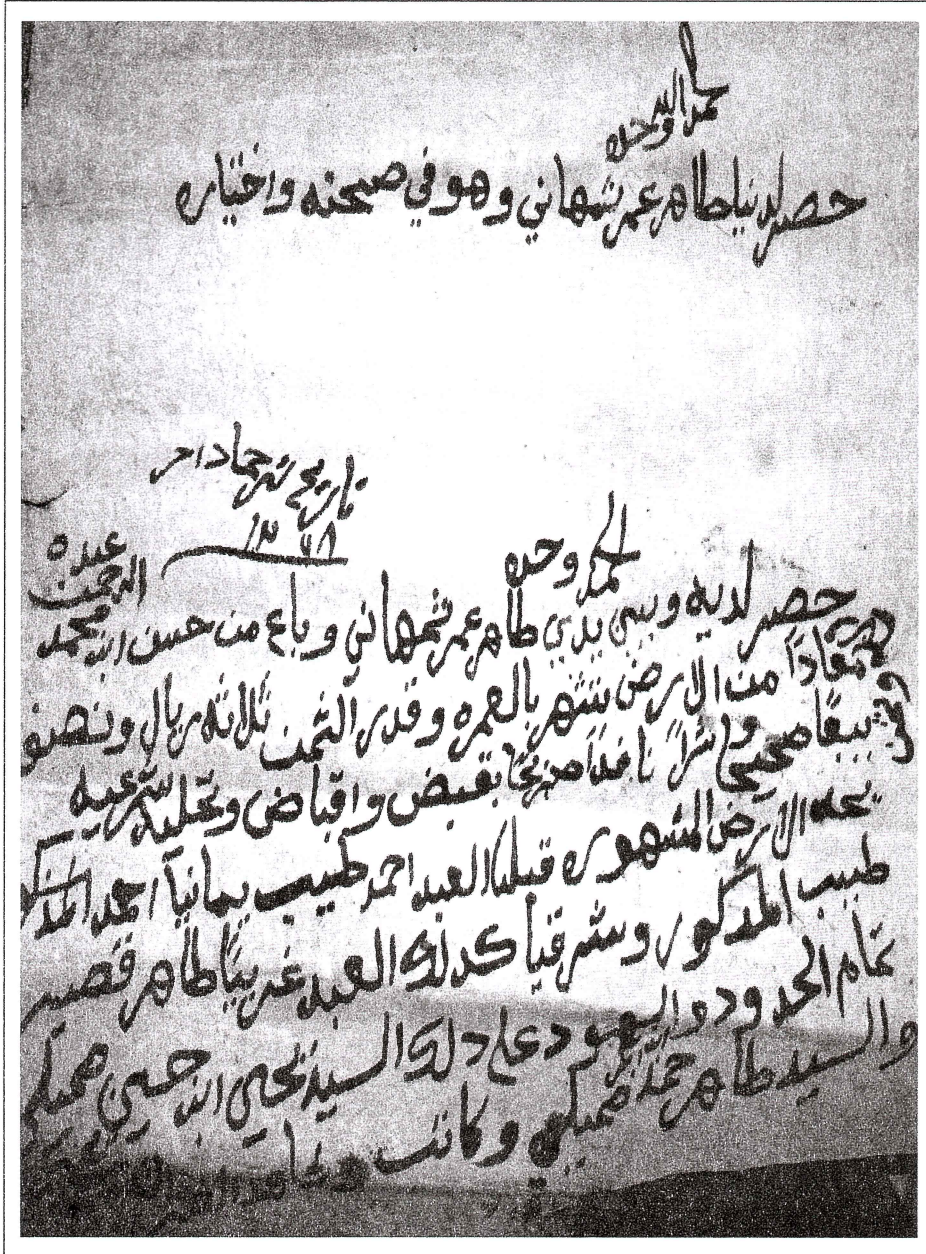 حمد الله
وحده
حصر لدينا طاهر عمر شهاني وهو في صحته واختياره
تاريخ شهر جماد اخر
الحمد وحده
عبده
الرحمن
محمد
حصر لديه وبين يدي طاهر عمر شهاني وباع من حسن ابن
معاداً من الارض يشتهر بالعمره وقدر الثمن ثلاثه ريال ونصف
بيعًا صحيحًا نافذاً بقبض واقباض وتخليه شرعيه
يحده الارض المشهوره قبليا العبد احمد طبيب يمانياً احمد المذكور
طبيب المذكور وشرقيا كدلك العبد غربيًا طاهر قصير
تمام الحدود والشهود علا دلك السيد يحيى ابن حسين
والسيد طاهر حمد وكانت